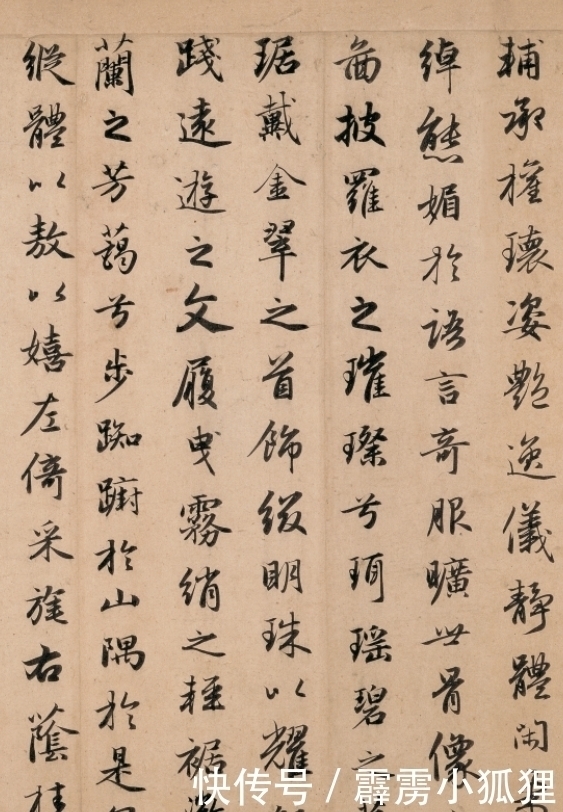 輔承權瓌姿艷逸儀靜體閑
綽態媚於語言奇服曠世骨像
啚披羅衣之璀璨兮珥瑤碧之
琚戴金翠之首飾綴明珠以耀
踐遠遊之文履曳霧綃之輕裾
蘭之芳藹兮步踟躕於山隅於是
縱體以敖以嬉左倚采旄右蔭桂
快传号 / 霹雳小狐狸